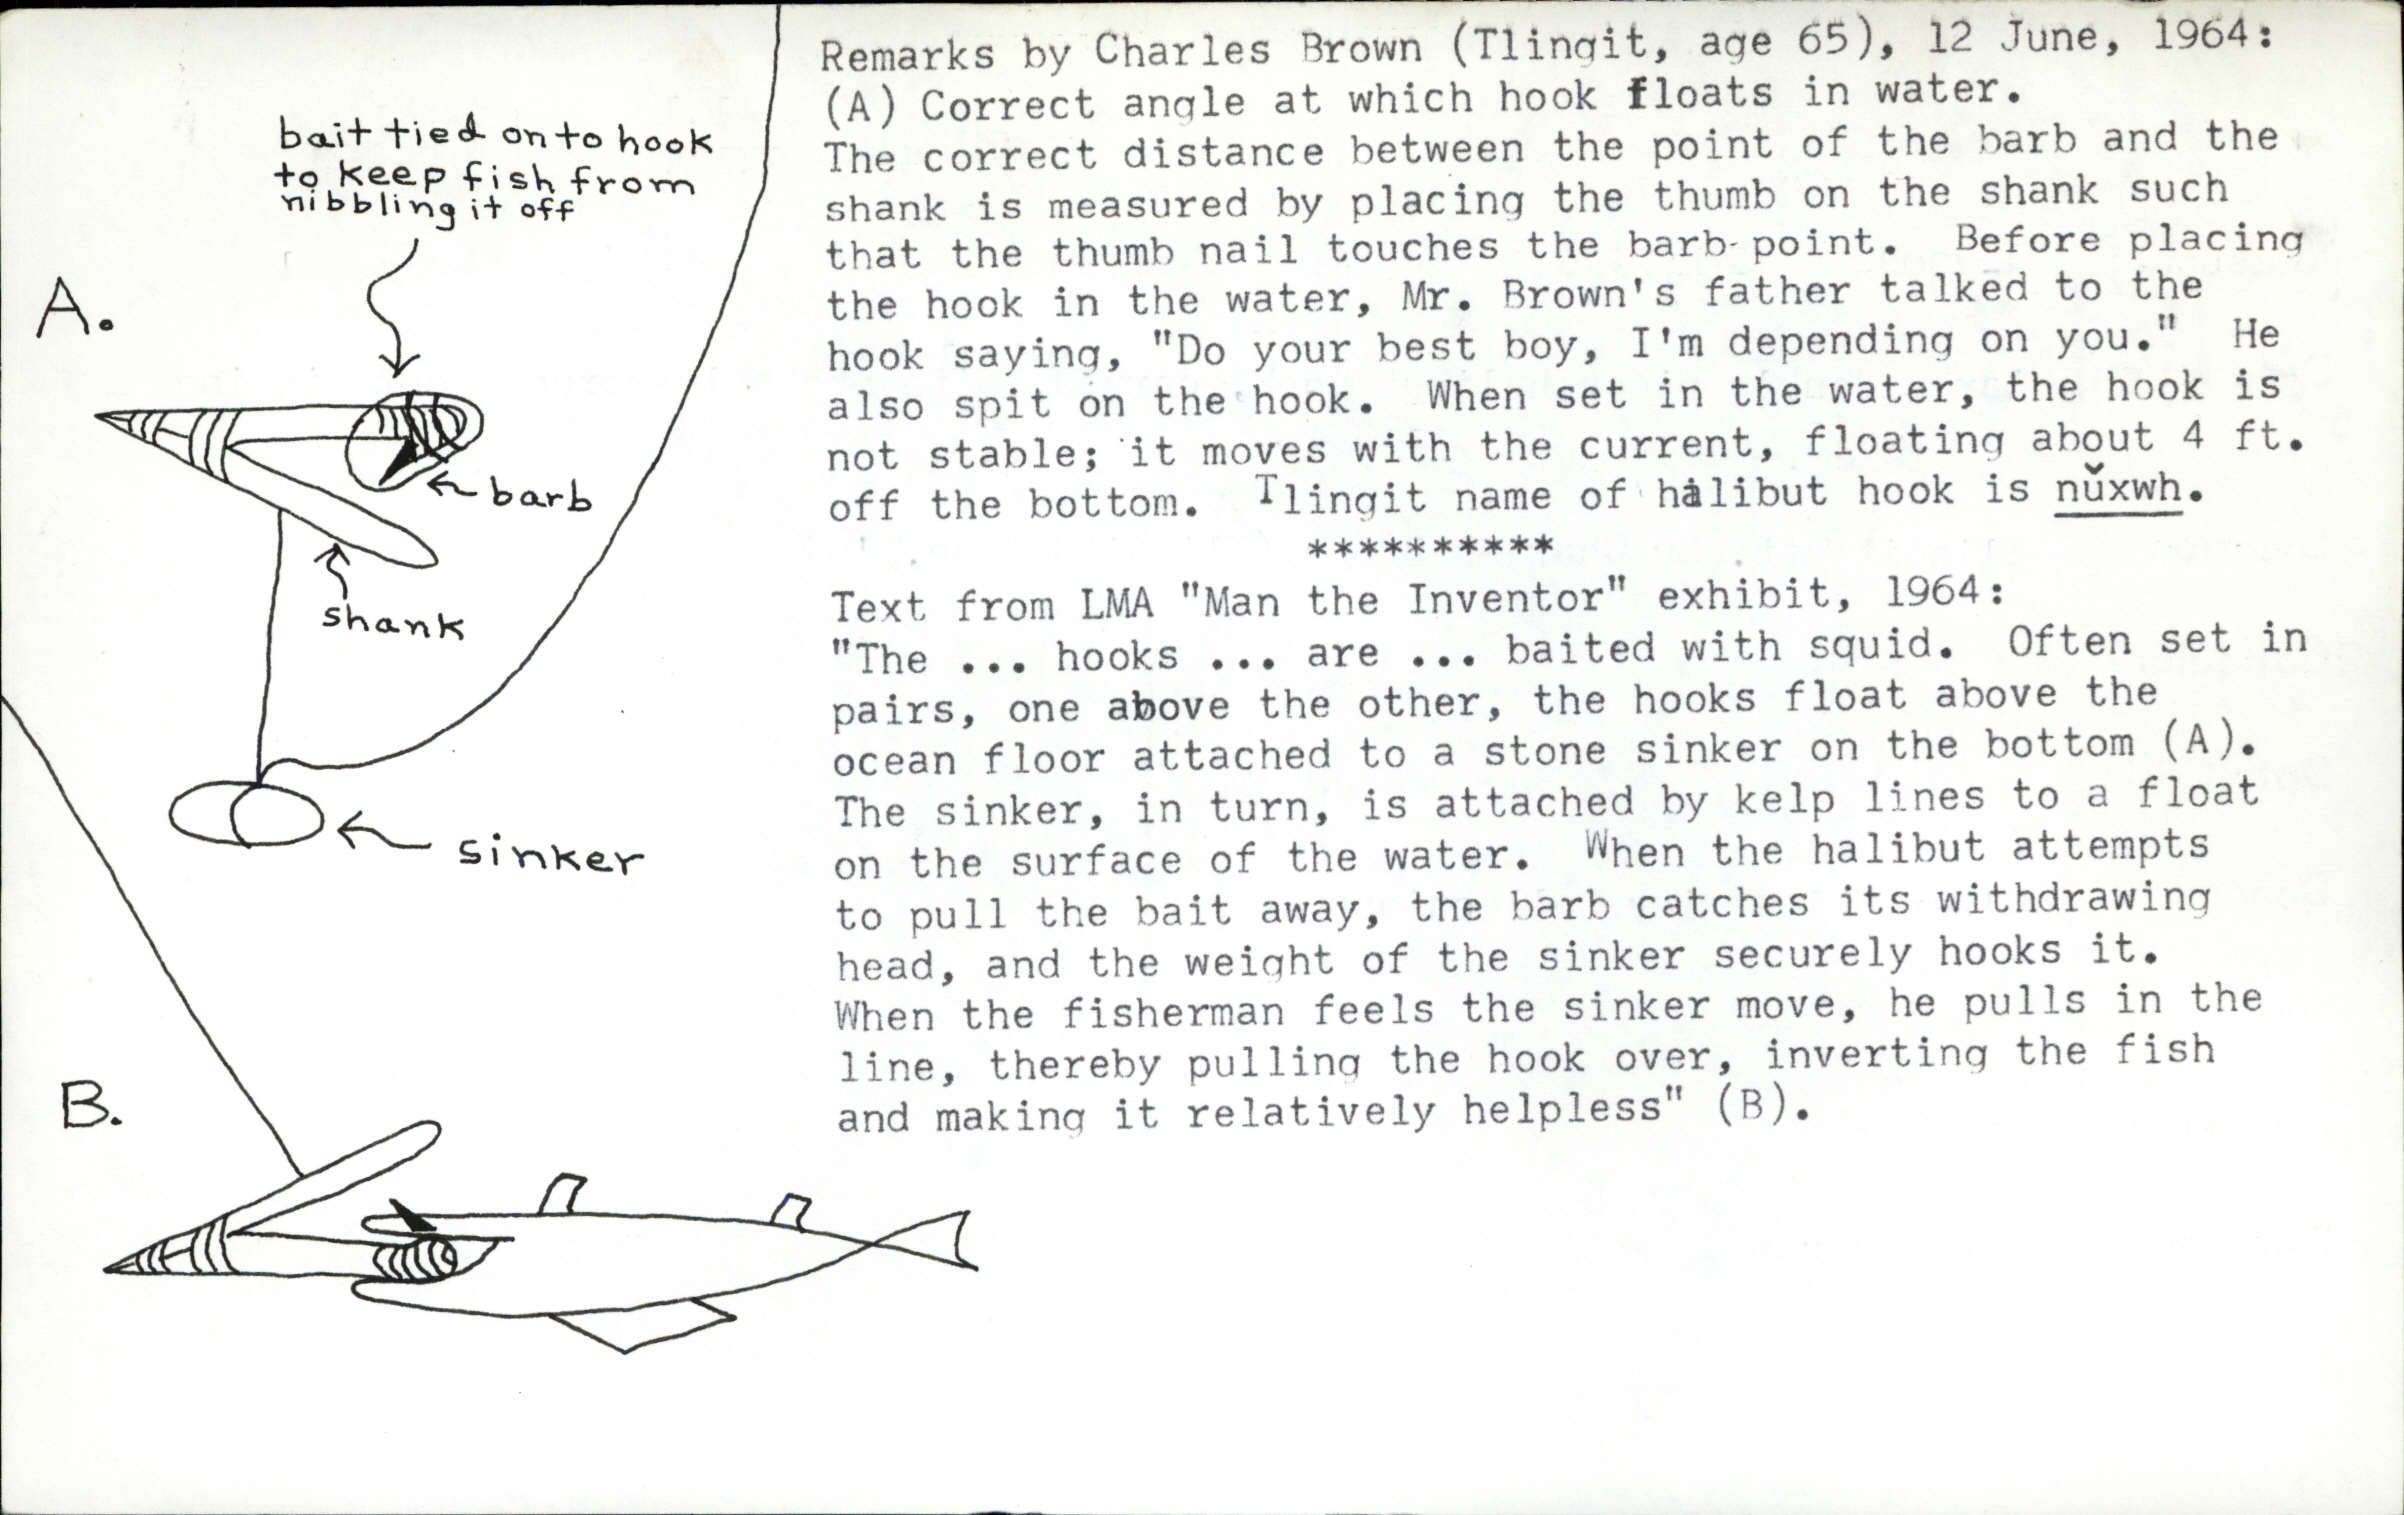 Remarks by Charles Brown (Tlingit, age 65), 12 June, 1964:
(A) Correct angle at which hook floats in water.
The correct distance between the point of the barb and the
shank is measured by placing the thumb on the shank such
that the thumb nail touches the barb-point. Before placing
the hook in the water, Mr. Brown's father talked to the
hook saying, "Do your best boy, I'm depending on you." He
also spit on the hook. When set in the water, the hook is
not stable; it moves with the current, floating about 4 ft.
off the bottom. Tlingit name of halibut hook is nǔxwh.
**********
Text from LMA "Man the Inventor" exhibit, 1964:
"The ... hooks ... are ... baited with squid. Often set in
pairs, one above the other, the hooks float above the
ocean floor attached to a stone sinker on the bottom (A).
The sinker, in turn, is attached by kelp lines to a float
on the surface of the water. When the halibut attempts
to pull the bait away, the barb catches its withdrawing
head, and the weight of the sinker securely hooks it.
When the fisherman feels the sinker move, he pulls in the
line, thereby pulling the hook over, inverting the fish
and making it relatively helpless" (B).
bait tied onto hook
to keep fish from
nibbling it off
A.
barb
shank
sinker
B.